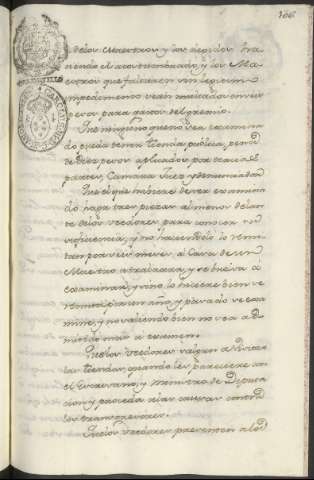 166
delos Maestros y los peritos ha
siendo el acostumbrado, y los Ma
estros que faltaren sin legitimo
impedimento sean multados en un
peso para gastos del gremio.
Que ninguno que no sea examina
do pueda tener tienda publica, pena
de diez pesos aplicados por tercias
partes, Camara Juez y denunciador
Que el que hubiere de ser examina
do haga tres piezas al menos delan
te delos veedores para conocer su
suficiencia, y no haciendolo lo remi
tan por seis meses, a Casa de un
Maestro a trabajar, y se buelva á
examinar, y si no lo hiciere bien se
remita por un año, y pasado se exa
mine, y no saliendo bien no sea ad
mitido mas a examen.
Que los Veedores salgan a visitar
las tiendas, quando les pareciere con
el Escrivano, y Ministro de Diputa
cion y proceda a las causas contra
los transgresores.
Que los Veedores